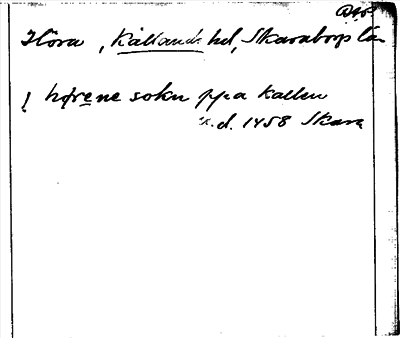 Höra, Kållands hd, Skaraborgs län
J hørene sokn ppa kallen
u.d. 1458 Skara